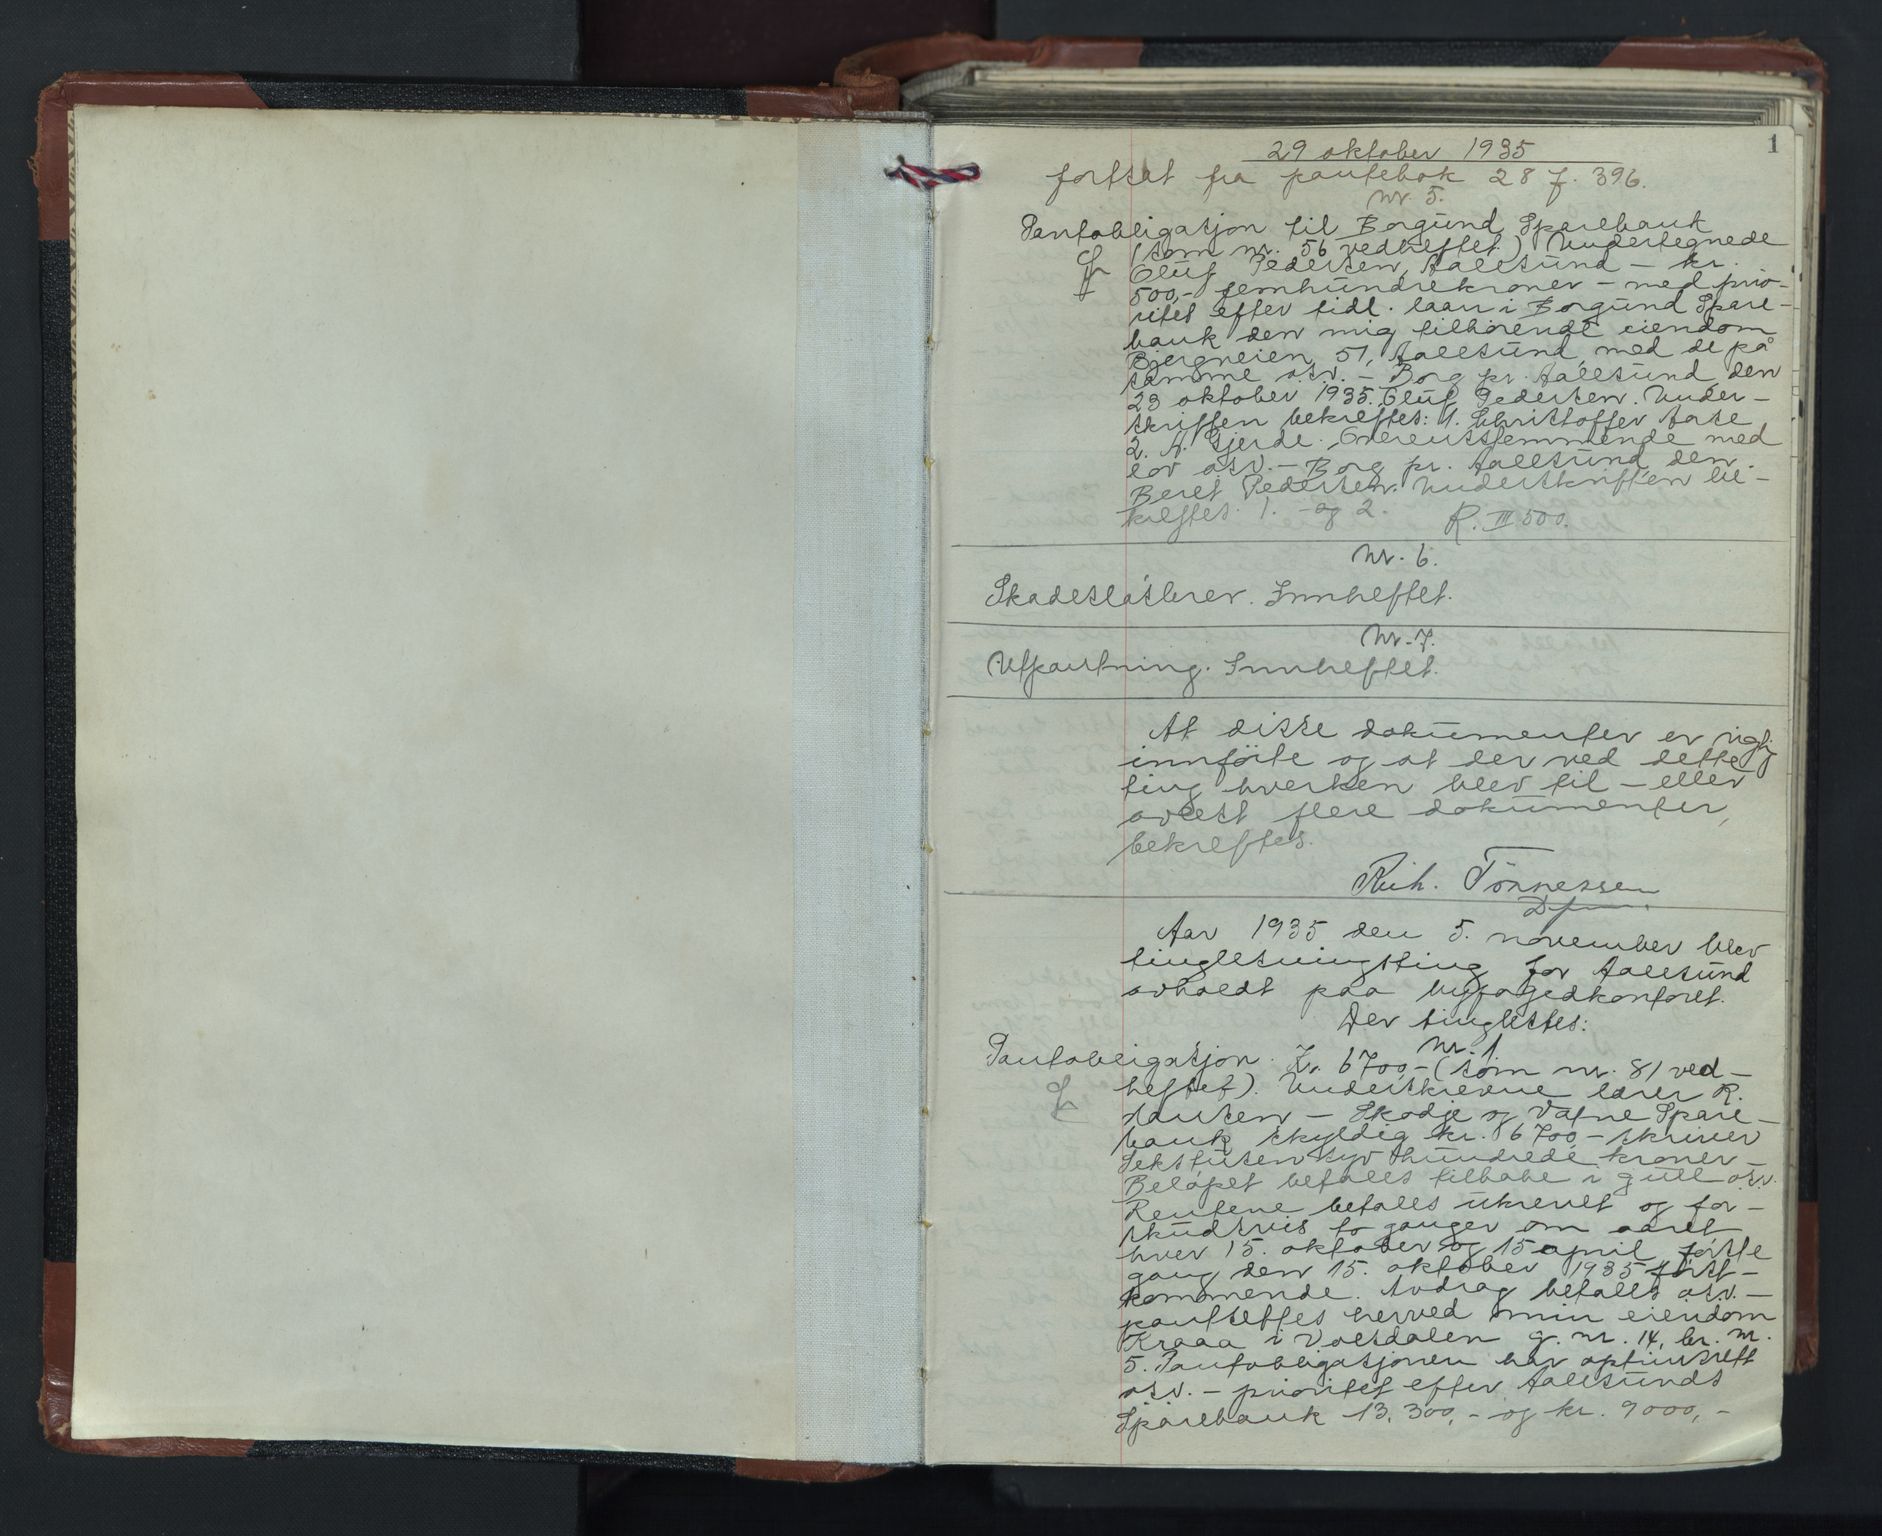 1
29 oktober 1935
fortsat fra pantebok 28 f. 396.
nr. 5.
Pantobligasjon til Borgund Sparebank
(som nr. 56 vedheftet.) Undertegnede
Oluf Pedersen, Aalesund – kr.
500,- femhundrekroner – med prio-
ritet efter tidl. laan i Borgund Spare-
bank den mig tilhörende eiendom
Bjergveien 51, Aalesund med de på
samme osv. – Borg pr. Aalesund, den
23 oktober 1935. Oluf Pedersen. Under-
skriften bekreftes: 1. Christoffer Aase
2. A. Gjerde. Overensstemmende med
lov osv. – Borg pr. Aalesund den.
Beret Pedersen. Underskriften be-
kreftes. 1. – og 2. R. III 500.
Nr. 6.
Skadeslösbrev. Innheftet.
Nr. 7.
Utpantning. Innheftet.
At disse dokumenter er rigtig
innförte og at der ved dette
ting hverken blev til – eller
avlest flere dokumenter,
bekreftes.
Rich. Tönnessen
Aar 1935 den 5. november blev
tinglesningsting for Aalesund
avholdt paa byfogedkontoret.
Der tinglestes:
Nr. 1.
Pantobligasjon. Kr. 6700,- (som nr. 81 ved-
heftet). Underskrevne lærer R.
– Skodje og Vatne Spare-
bank skyldig kr. 6700,- skriver
Sekstusensyvhundrede kroner –
Belöpet betales tilbake i gull osv.
Rentene betales ukrevet og for-
skudsvis to ganger om aaret
hver 15. oktober og 15 april, förste
gang den 15. oktober 1935 först-
kommende. Avdrag betales osv. –
pantsettes herved min eiendom
Kraaa i Volsdalen g. nr. 14, br. nr.
5. Pantobligasjonen har optinsrett
osv. – prioritet efter Aalesunds
Sparebank 13.300,- og kr. 9000,-